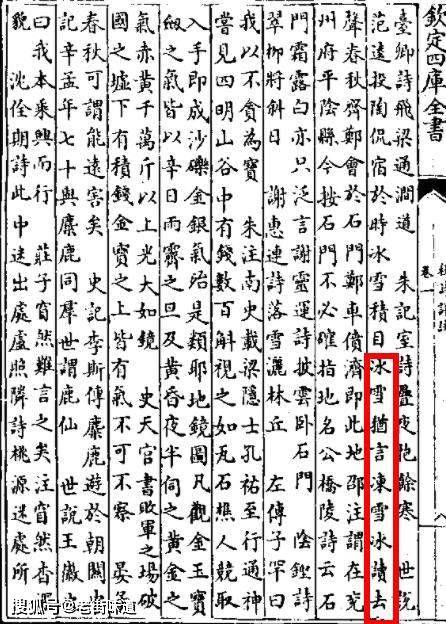 欽定四庫全書
卷一
臺卿詩飛梁通澗道 朱記室詩疊夜抱餘寒 世説
范逵投陶侃宿於時冰雪積日冰雪猶言凍雪冰讀去
聲春秋齊鄭會於石門鄭車僨濟即此地邵注謂在兗
州府平陰縣今按石門不必確指地名公橋陵詩云石
門霜露白亦只泛言謝靈運詩披雲卧石門 陰鏗詩
翠柳將斜日 謝惠連詩落雪灑林丘 左傳子罕曰
我以不貪為寶 朱注南史載梁隱士孔祐至行通神
嘗見四明山谷中有錢數百斛視之如瓦石樵人競取
入手即成沙礫金銀氣殆是類耶地鏡圖凡觀金玉寶
劍之氣皆以辛日雨霽之旦及黄昏夜半伺之黄金之
氣赤黄千萬斤以上光大如鏡 史天官書敗軍之場破
國之墟下有積錢金寶之上皆有氣不可不察 晏子
春秋可謂能遠害矣 史記李斯傳麋鹿遊於朝關中
記辛孟年七十與麋鹿同羣世謂鹿仙 世説王徽之
曰我本乘興而行 莊子窅然難言之矣注窅然杳深
貌 沈佺期詩此中迷出處盧照隣詩桃源迷處所
搜狐号@老街味道